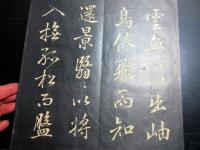 雲無心以出岫
鳥倦飛而知
還景翳翳以將
入撫孤松而盤